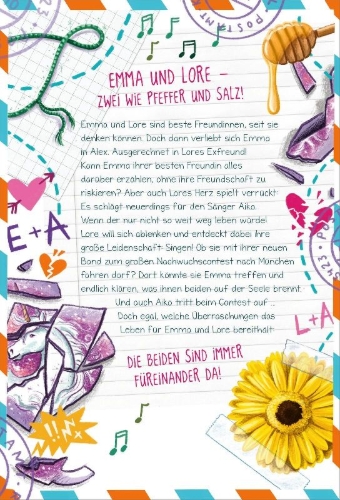 EMMA UND LORE –
ZWEI WIE PFEFFER UND SALZ!
Emma und Lore sind beste Freundinnen, seit sie
denken können. Doch dann verliebt sich Emma
in Alex. Ausgerechnet in Lores Exfreund!
Kann Emma ihrer besten Freundin alles
darüber erzählen, ohne ihre Freundschaft zu
riskieren? Aber auch Lores Herz spielt verrückt:
Es schlägt neuerdings für den Sänger Aiko.
Wenn der nur nicht so weit weg leben würde!
Lore will sich ablenken und entdeckt dabei ihre
große Leidenschaft: Singen! Ob sie mit ihrer neuen
Band zum großen Nachwuchscontest nach München
fahren darf? Dort könnte sie Emma treffen und
endlich klären, was ihnen beiden auf der Seele brennt.
Und auch Aiko tritt beim Contest auf ...
Doch egal, welche Überraschungen das
Leben für Emma und Lore bereithält:
DIE BEIDEN SIND IMMER
FÜREINANDER DA!
E+A
L+A
!!!